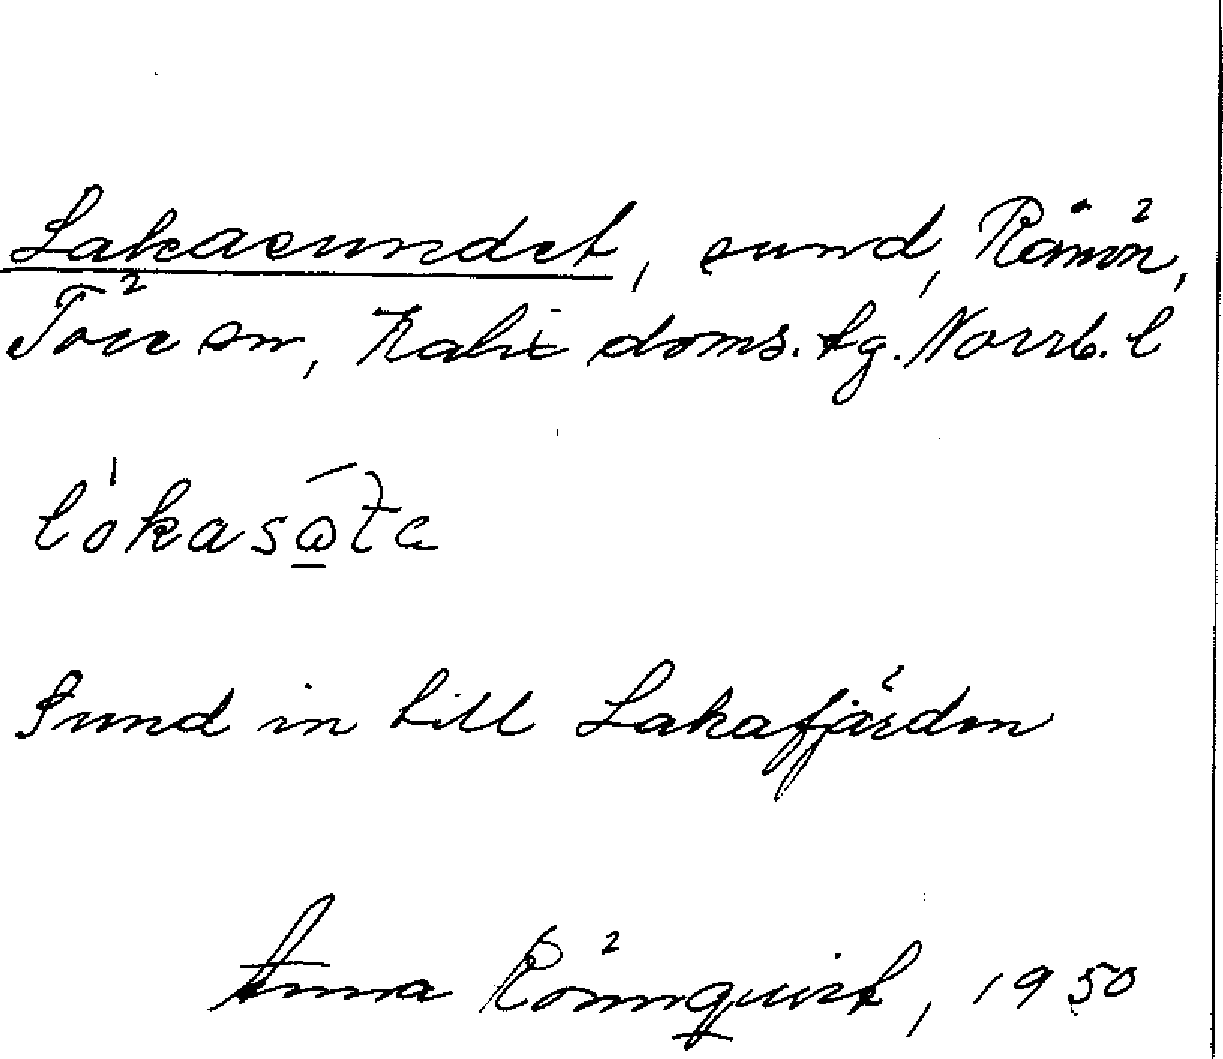 Lakasundet, sund, Rånön,
Töre sn, Kalix doms. tg. Norrb. l
Sund in till Lakafjärden
Anna Rönnquist, 1950